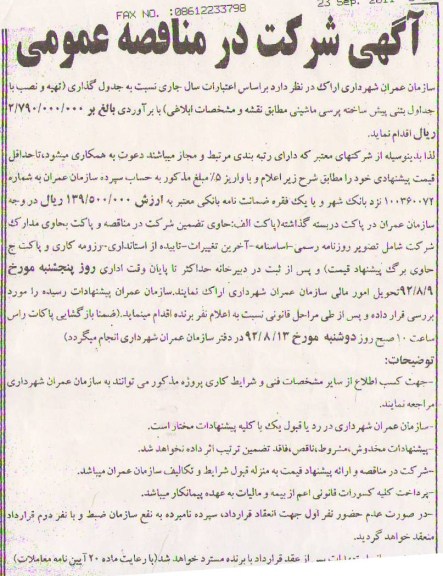 FAX NO. :08612233798 23 Sep. 2011
آگهی شرکت در مناقصه عمومی
سازمان عمران شهرداری اراک در نظر دارد براساس اعتبارات سال جاری نسبت به جدول گذاری (تهیه و نصب یا
جداول بتنی پیش ساخته پرسی ماشینی مطابق نقشه و مشخصات ابلاغی) با برآوردی بالغ بر ۲/۷۹۰/۰۰۰/۰۰۰
ریال اقدام نماید.
لذا بدینوسیله از شرکتهای معتبر که دارای رتبه بندی مرتبط و مجاز میباشند دعوت به همکاری میشود،تاحداقل
قیمت پیشنهادی خود را مطابق شرح زیر اعلام و با واریز ۵٪ مبلغ مذکور به حساب سپرده سازمان عمران به شماره
۱۰۰۳۶۰۰۷۲ نزد بانک شهر و یا یک فقره ضمانت نامه بانکی معتبر به ارزش ۱۳۹/۵۰۰/۰۰۰ ریال در وجه
سازمان عمران در پاکت دربسته گذاشته(پاکت الف:حاوی تضمین شرکت در مناقصه و پاکت ب:حاوی مدارک
شرکت شامل تصویر روزنامه رسمی-اساسنامه-آخرین تغییرات-تاییده از استانداری-رزومه کاری و پاکت ج
حاوی برگ پیشنهاد قیمت) و پس از ثبت در دبیرخانه حداکثر تا پایان وقت اداری روز پنجشنبه مورخ
۹۲/۸/۹تحویل امور مالی سازمان عمران شهرداری اراک نمایند.سازمان عمران پیشنهادات رسیده را مورد
بررسی قرار داده و پس از طی مراحل قانونی نسبت به اعلام نفر برنده اقدام مینماید.(ضمنا بازگشایی پاکات راس
ساعت ۱۰ صبح روز دوشنبه مورخ ۹۲/۸/۱۳ در دفتر سازمان عمران شهرداری انجام میگردد)
توضیحات:
-جهت کسب اطلاع از سایر مشخصات فنی و شرایط کاری پروژه مذکور می توانند به سازمان عمران شهرداری
مراجعه نمایند.
-سازمان عمران شهرداری در رد یا قبول یک یا کلیه پیشنهادات مختار است.
-پیشنهادات مخدوش،مشروط،ناقص،فاقد تضمین ترتیب اثر داده نخواهد شد.
-شرکت در مناقصه و ارائه پیشنهاد قیمت به منزله قبول شرایط و تکالیف سازمان عمران میباشد.
-پرداخت کلیه کسورات قانونی اعم از بیمه و مالیات به عهده پیمانکار میباشد.
-در صورت عدم حضور نفر اول جهت انعقاد قرارداد، سپرده نامبرده به نفع سازمان ضبط و با نفر دوم قرارداد
منعقد خواهد گردید.
پس از عقد قرارداد با برنده مسترد خواهد شد(با رعایت ماده ۲۰ آیین نامه معاملات)